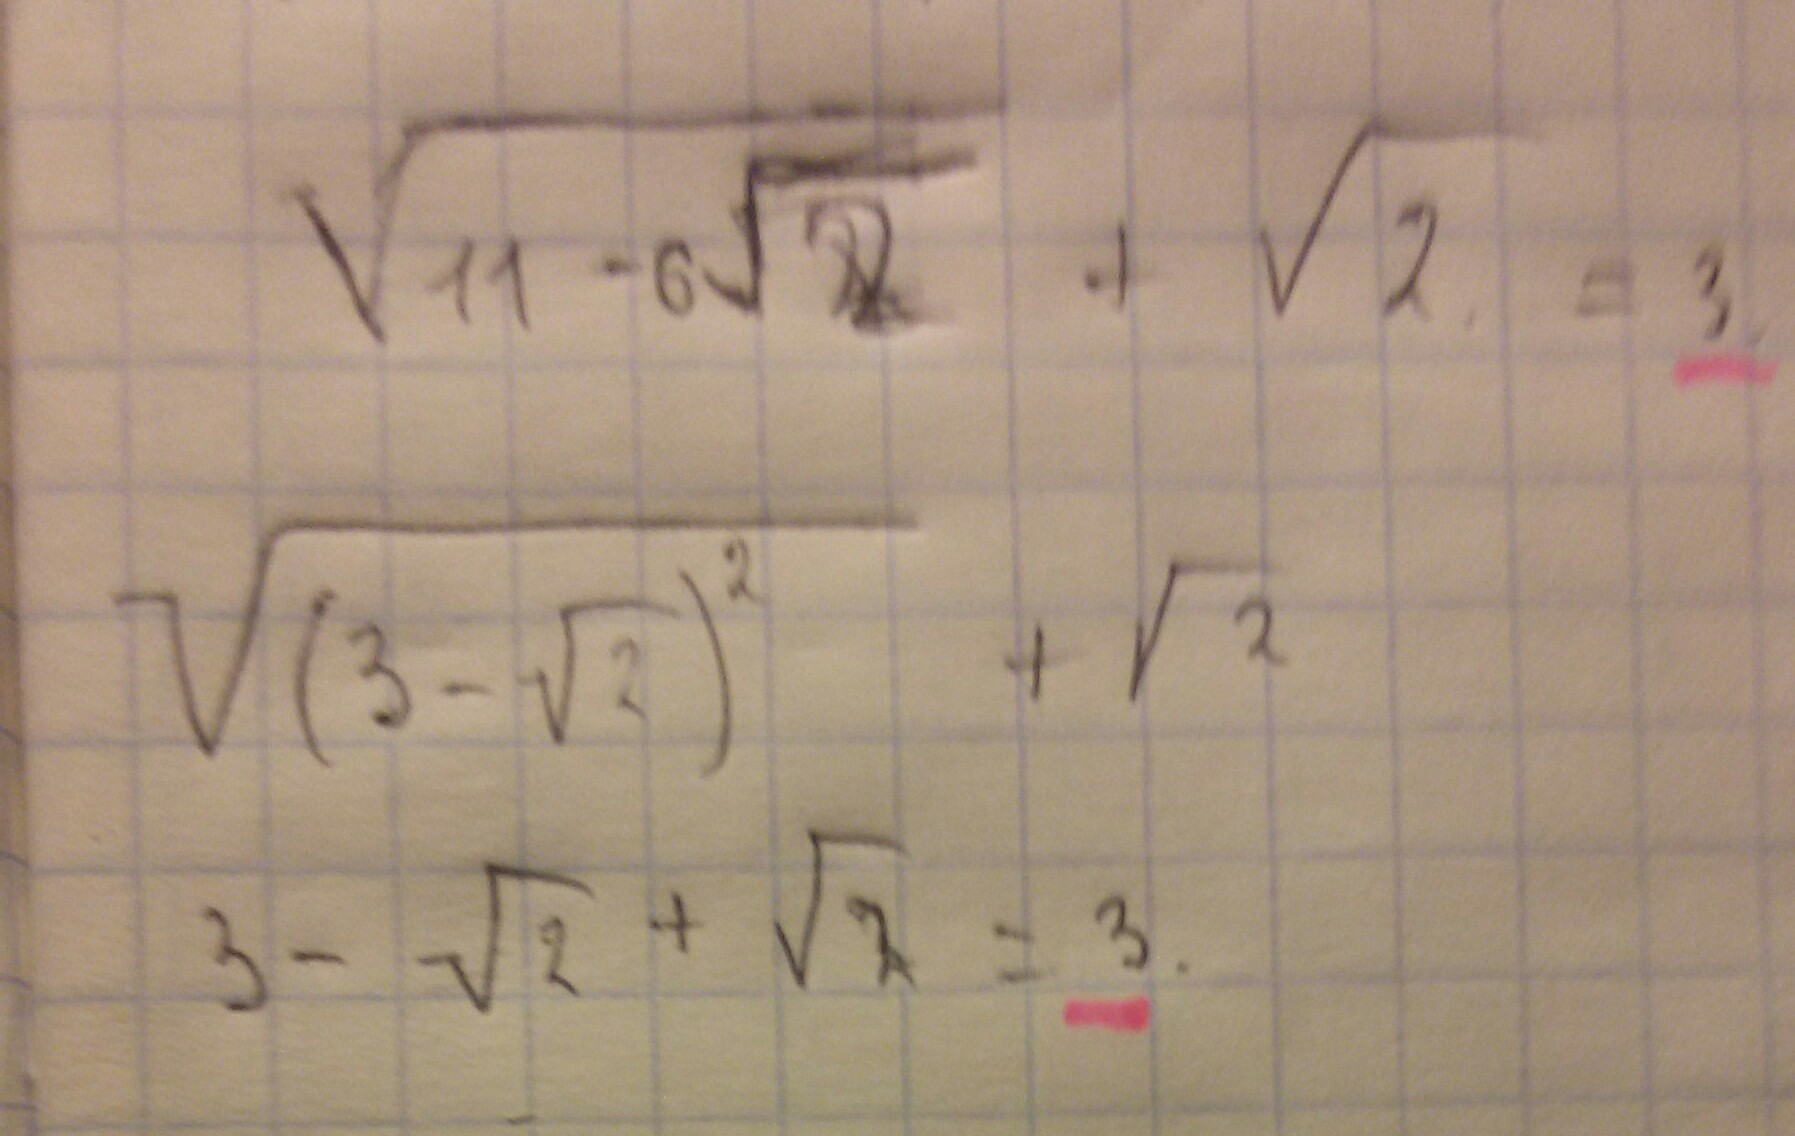 √(11 - 6√2) + √2. = 3.
√((3 - √2)²) + √2
3 - √2 + √2 = 3.